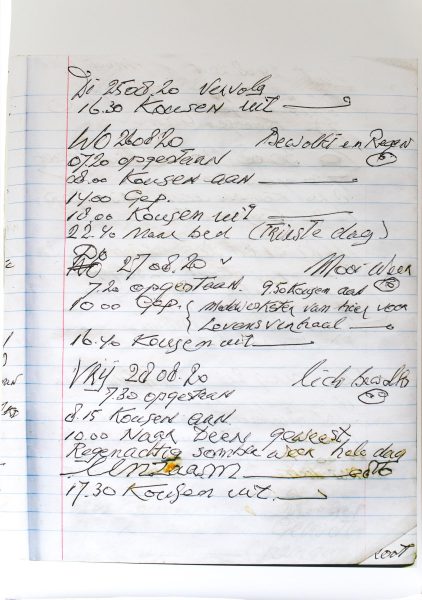 Di 25 08.20 Vervolg
16.30 Kousen uit
WO 26 08.20 Bewolkt en Regen
07.20 opgestaan
08.00 Kousen aan
14.00 Gep.
18.00 Kousen uit
22.40 Naar bed (Trieste dag)
Do 27 08.20 Mooi Weer
7.20 opgestaan. 9.50 Kousen aan
10.00 Gep. { van hier voor
Levensverhaal
16.40 Kousen uit
VRIJ 28 08.20 lich bewolkt
7.30 opgestaan
8.15 Kousen aan.
10.00 Naar geweest,
Regenachtig somber weer hele dag
EENZAAM
17.30 Kousen uit.